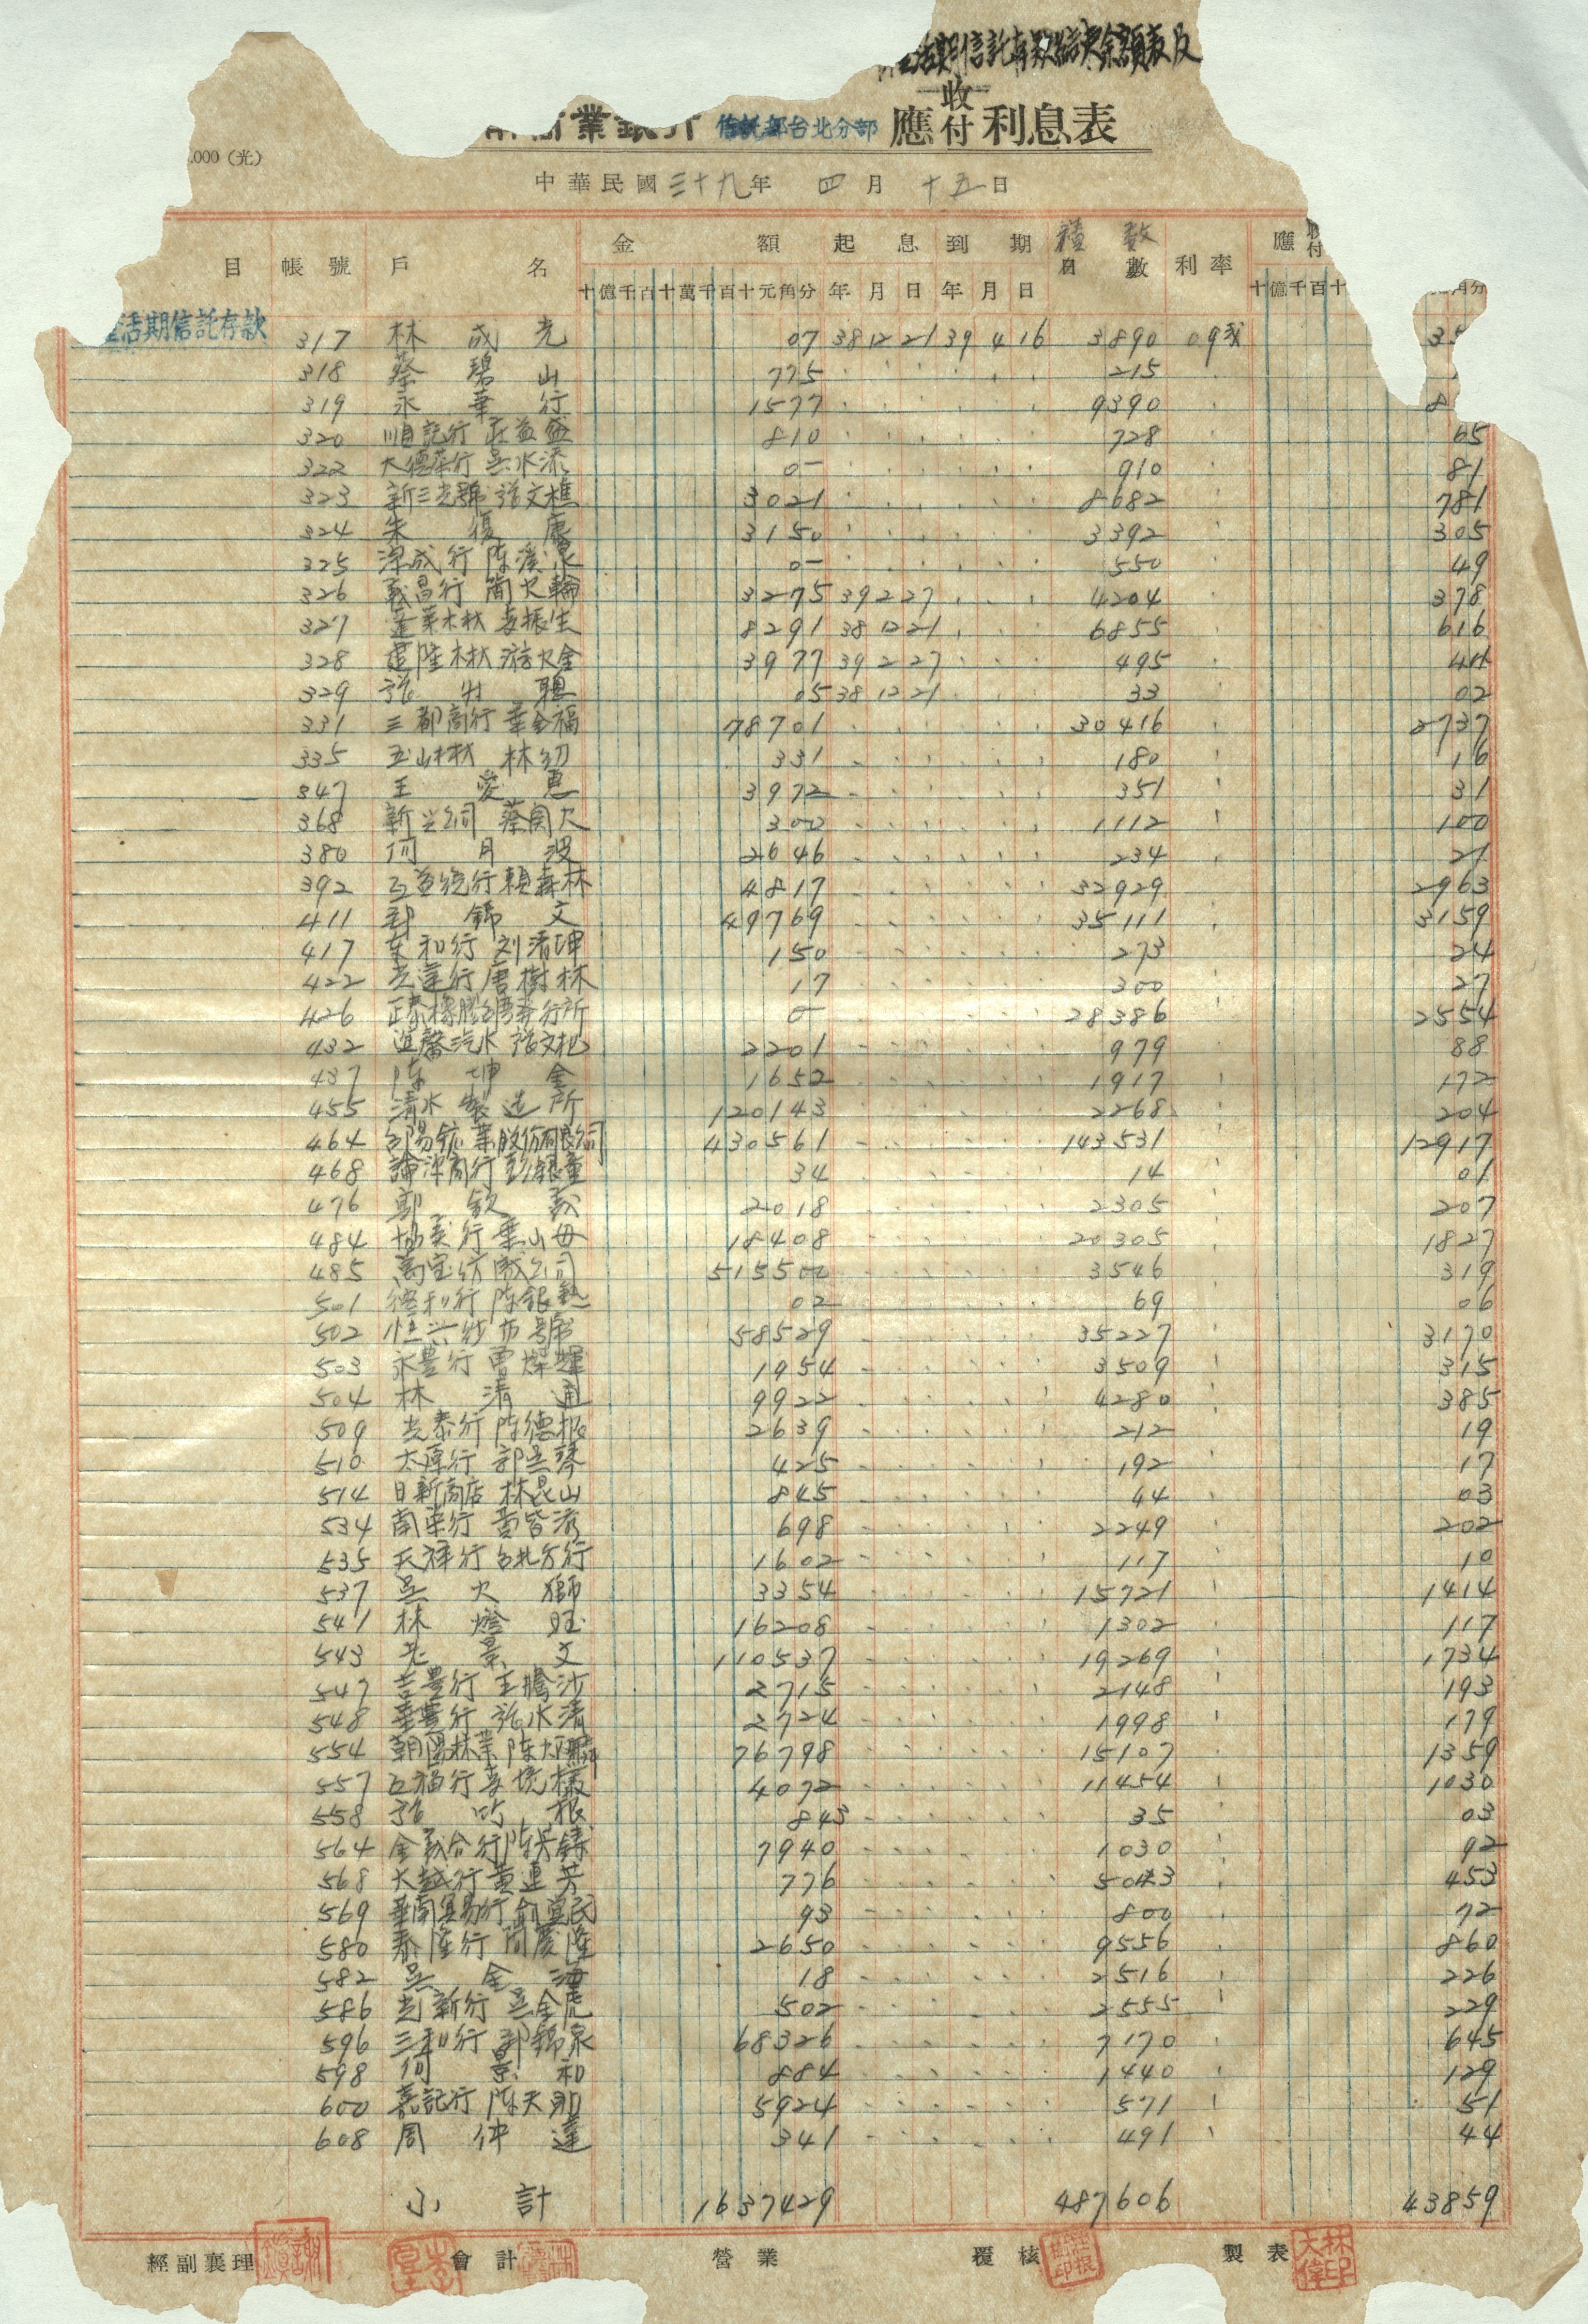 活期信託存款結決余額表及
商業銀行 信託部台北分部 應收付利息表
.000（光）
中華民國三十九年 四月 十五日
目 帳號 戶名 金額 起息 到期 積數 日數 利率 應收付
十億千百十萬千百十元角分 年月日 年月日 十億千百十 角分
活期信託存款 317 林成光 07 38 12 21 39 4 16 3890 09
318 蔡碧山 775 215
319 永華行 1577 9390 8
320 順記行 莊益盛 810 728 65
322 吳水添 0- 910 81
323 新三光號 張文樵 3021 8682 781
324 朱復康 3150 3392 305
325 深成行 陈溪泉 0- 550 49
326 義昌行 簡火輪 3275 39 2 27 4204 378
327 蓬莱木材 李振生 8291 38 12 21 6855 616
328 建陸木材 游火金 3977 39 2 27 495 44
329 張 05 38 12 21 33 02
331 三都商行 葉金福 78701 30416 2737
335 玉山木材 林幼 331 180 16
347 王愛惠 3972 351 31
368 新兴公司 蔡 300 1112 100
380 何月波 2646 234 21
392 賴森林 4817 32929 2963
411 郭錦文 49769 35111 3159
417 东和行 刘清坤 150 273 24
422 光蓮行 唐樹林 17 300 27
426 正泰橡膠 0- 28386 2554
432 進馨汽水 張文杞 2201 979 88
437 陈坤金 1652 1917 172
455 清水製造所 120143 2268 204
464 台陽鉱業股份有限公司 430561 143531 12917
468 商行 彭銀童 34 14 01
476 郭欽義 2018 2305 207
484 協美行 葉山母 18408 20305 1827
485 萬宝紡織公司 515502 3546 319
501 德利行 陈銀塾 02 69 06
502 恒兴紗布號 58529 35227 3170
503 永豊行 曹燦輝 1954 3509 315
504 林清通 9922 4280 385
509 光泰行 陈德 2639 212 19
510 太厚行 郭吳琴 425 192 17
514 日新商店 林昆山 845 44 03
534 南东行 黄 698 2249 202
535 天祥行 台北分行 1602 117 10
537 吳火獅 3354 15721 1414
541 林燈旺 16208 1302 117
543 景文 110537 19269 1734
547 吉豊行 王騰沙 2715 2148 193
548 華豊行 張水清 2724 1998 179
554 朝陽林業 陈 76798 15107 1359
557 五福行 李 4072 11454 1030
558 張竹根 843 35 03
564 金義合行 陈 7940 1030 92
568 大越行 黄連芳 776 5043 453
569 華南貿易行 俞宣民 93 800 72
580 泰隆行 簡慶隆 2650 9556 860
582 吳金海 18 2516 226
586 光新行 吳金虎 502 2555 229
596 三和行 郭錦泉 68326 7170 645
598 何景和 884 1440 129
600 嘉記行 陈天助 5924 571 51
608 周仲達 341 491 44
小計 1637429 487606 43859
經副襄理 會計 營業 覆核 製表 林大偉印